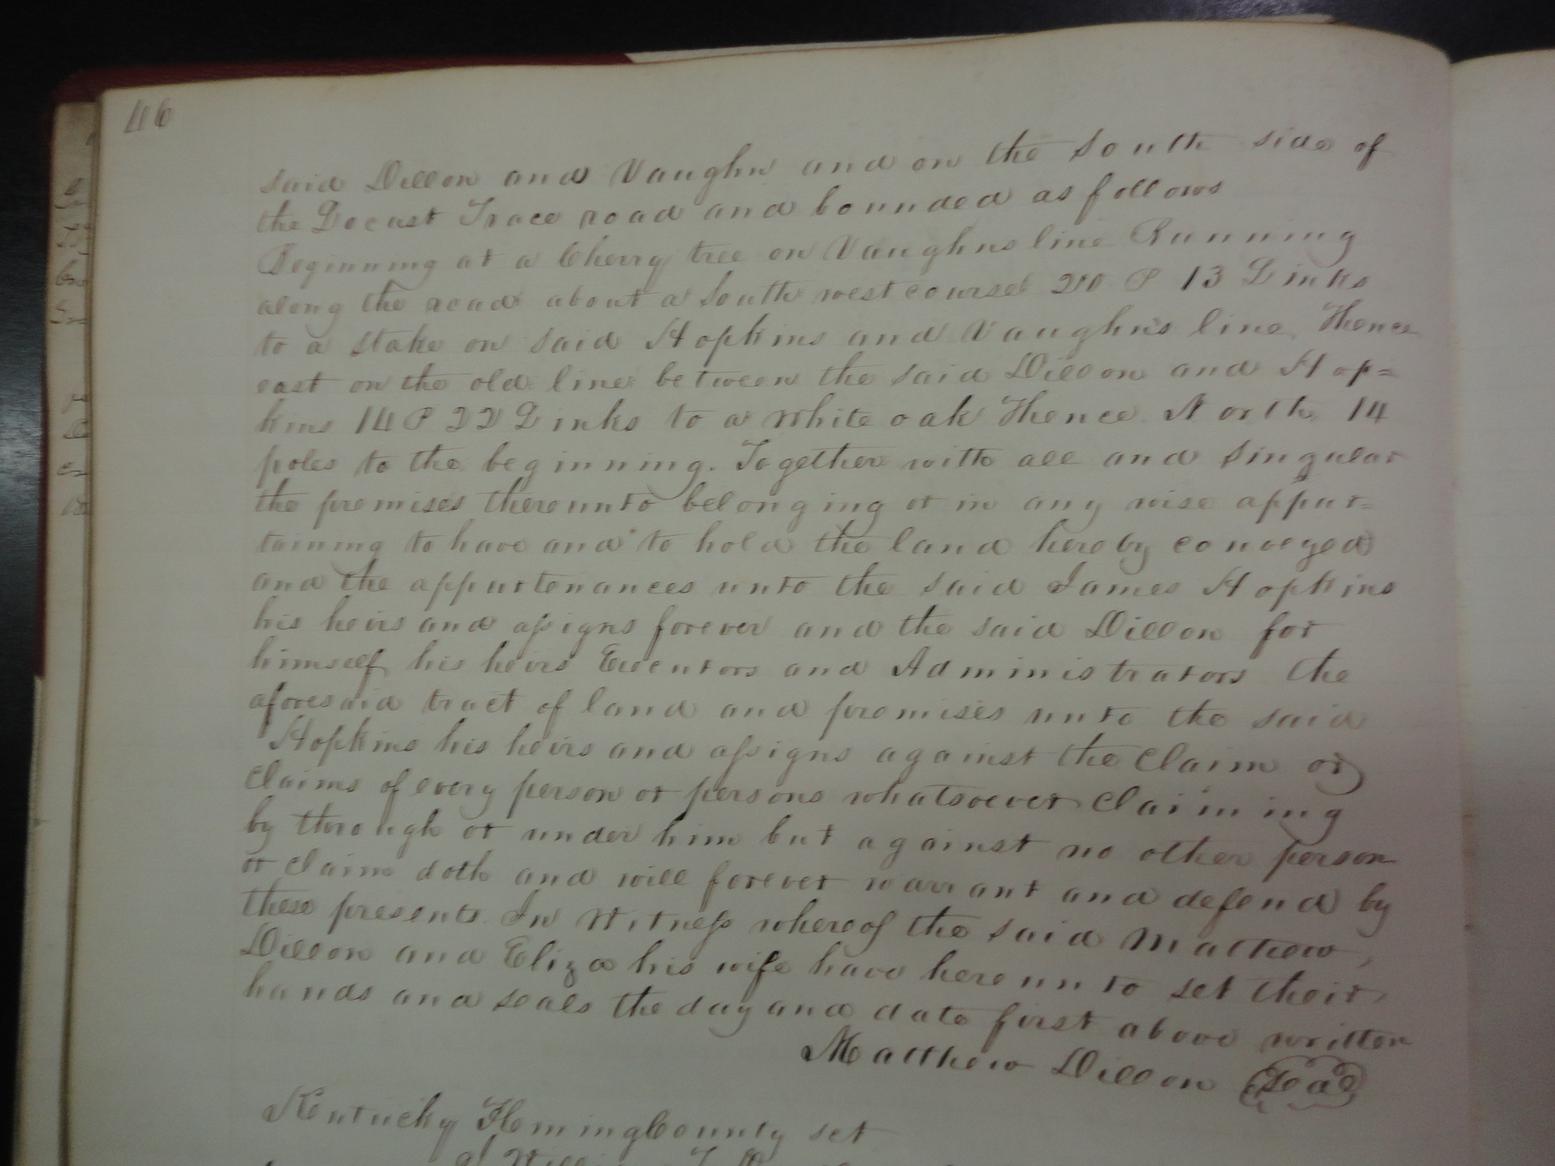 46
said Dillon and Vaughn and on the South side of
the Locust Trace road and bounded as follows
Beginning at a Cherry tree on Vaughns line Running
along the road about a South west course 20 P 13 Links
to a stake on said Hopkins and Vaughn's line, Thence
east on the old line between the said Dillon and Hop=
kins 14 P 22 Links to a White oak Thence North 14
poles to the beginning. Together with all and Singular
the premises thereunto belonging or in any wise appur=
taining to have and to hold the land hereby conveyed
and the appurtenances unto the said James Hopkins
his heirs and assigns forever and the said Dillon for
himself his heirs Executors and Administrators the
aforesaid tract of land and premises unto the said
Hopkins his heirs and assigns against the Claim or
Claims of every person or persons whatsoever Claiming
by through or under him but against no other person
or Claim doth and will forever warrant and defend by
these presents. In Witness whereof the said Mathew
Dillon and Eliza his wife have hereunto set their
hands and seals the day and date first above written
Matthew Dillon Seal
Kentucky Fleming County set